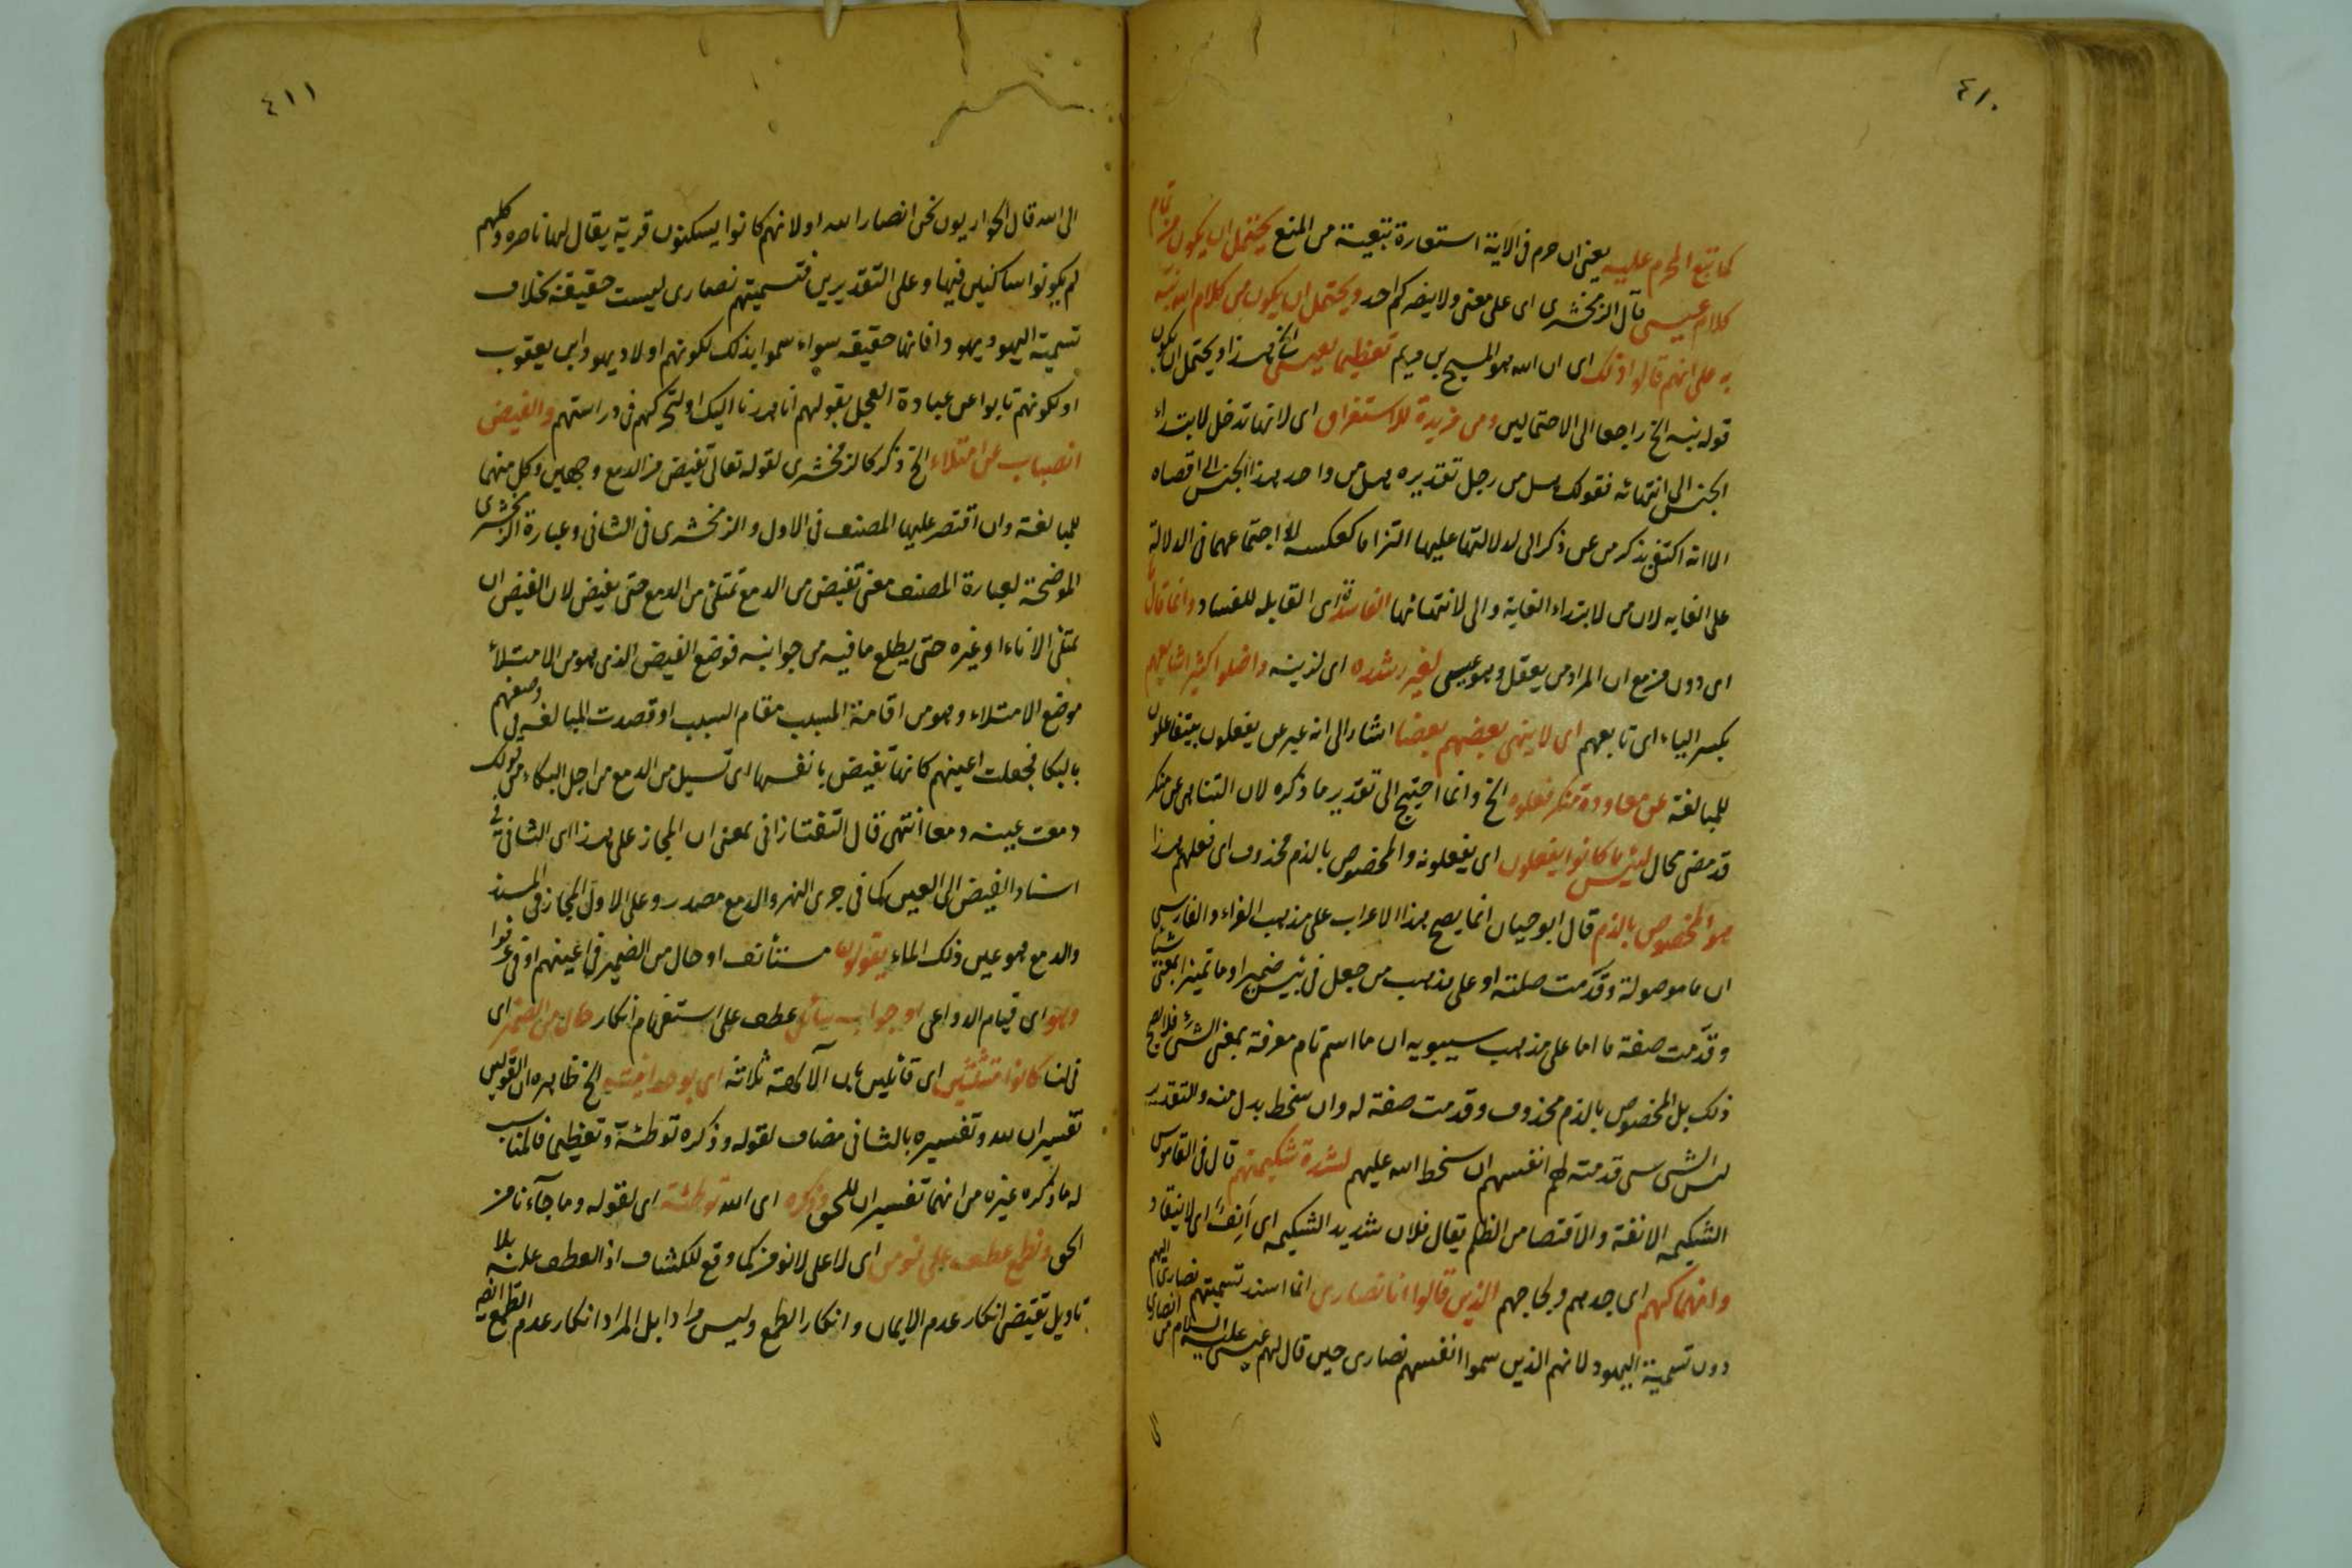 ٤١٠
كما يمنع المحرم عليه يعنى ان حرم فى الاية استعارة تبعية من المنع يحتمل ان يكون من تمام
كلام عيسى قال الزمخشرى اى على معنى ولا ينصركم احد ويحتمل ان يكون من كلام الله نبه
به على انهم قالوا ذلك اى ان الله هو المسيح بن مريم تعظيما لعيسى الخ هذا ويحتمل ان يكون
قوله نبه الخ راجعا الى الاحتمالين ومن مزيدة للاستغراق اى لانها تدخل لابتداء
الجنس الى انتهائه فقولك هل من رجل تقديره هل من واحد هذا الجنس الى اقصاه
الا انه اكتفى بذكر من عن ذكر الى لدلالتها عليها التزاما كعكسه لا اجتماعهما فى الدلالة
على الغايه لان من لابتداء الغاية والى لانتهائها الفاسدة اى القابله للفساد وانما قال
اى دون من مع ان المراد من يعقل وهو عيسى لغير رشده اى لزينه واضلوا كثيرا شايعهم
بكسر الياء اى تابعهم اى لا ينهى بعضهم بعضا اشار الى انه عبر عن يفعلون بيتفاعلون
للمبالغة عن معاودة منكر فعلوه الخ وانما احتيج الى تقدير ما ذكره لان التناهى عن منكر
قد مضى محال لبئس ما كانوا يفعلون اى يفعلونه والمخصوص بالذم محذوف اى فعلهم هذا
هو المخصوص بالذم قال ابو حيان انما يصح هذا الاعراب على مذهب الفراء والفارسى
ان ما موصولة وقدمت صلته او على مذهب من جعل فى بئس ضميرا وما تمييز بمعنى شيئا
وقدمت صفة ما اما على مذهب سيبويه ان ما اسم تام معرفة بمعنى الشئ فلا يصح
ذلك بل المخصوص بالذم محذوف وقدمت صفة له وان سخط بدل منه والتقدير
لبئس الشئ شئ قدمته لهم انفسهم ان سخط الله عليهم لشدة شكيمتهم قال فى القاموس
الشكيمه الانفة والاقتصا من الظلم يقال فلان شديد الشكيمه اى أنِف اى لا ينقاد
وانهماكهم اى جدهم ولجاجهم الذين قالوا انا نصارى انما اسند تسميتهم نصارى اليهم
دون تسمية اليهود لانهم الذين سموا انفسهم نصارى حين قال لهم عيسى عليه السلام من انصارى
الى
٤١١
الى الله قال الحواريون نحن انصار الله او لانهم كانوا يسكنون قرية يقال لها ناصره وكلهم
لم يكونوا ساكنين فيها وعلى التقديرين فتسميتهم نصارى ليست حقيقة بخلاف
تسمية اليهود يهودا فانها حقيقه سواء سموا بذلك لكونهم اولاد يهودا بن يعقوب
او لكونهم تابوا عن عبادة العجل بقولهم انا هدنا اليك او لتحركهم فى دراستهم والفيض
انصباب عن امتلاء الخ ذكر كالزمخشرى لقوله تعالى تفيض من الدمع وجهين وكل منهما
للمبالغة وان اقتصر عليها المصنف فى الاول والزمخشرى فى الثانى وعبارة الزمخشرى
الموضحة لعبارة المصنف معنى تفيض من الدمع تمتلئ من الدمع حتى يفيض لان الفيض ان
يمتلئ الاناء او غيره حتى يطلع ما فيه من جوانبه فوضع الفيض الذى هو من الامتلاء
موضع الامتلاء وهو من اقامة المسبب مقام السبب او قصدت المبالغه فى وصفهم
بالبكا فجعلت اعينهم كانها تفيض بانفسها اى تسيل من الدمع من اجل البكاء من قولك
دمعت عينه دمعا انتهى قال التفتازانى بمعنى ان المجاز على هذا اى الثانى فى
اسناد الفيض الى العين كما فى جرى النهر والدمع مصدر وعلى الاول المجاز فى المسند
والدمع هو عين ذلك الماء يقولون مستأنف او حال من الضمير فى اعينهم او فى عرفوا
وهو اى قيام الدواعى او جواب سائل عطف على استفهام انكار حال من الضمير اى
فى لنا كانوا مثلثين اى قائلين بان الآلهة ثلاثة اى بوحدانيته الخ ظاهره ان القولين
تفسيران لله وتفسيره بالثانى مضاف لقوله وذكره توطئة وتعظيما فالمناسب
له ما ذكره غيره من انهما تفسيران للحق وذكره اى الله توطئة اى لقوله وما جآءنا من
الحق ونطمع عطف على نؤمن اى لا على لا نؤمن كما وقع للكشاف اذ العطف عليه بلا
تاويل يقتضى انكار عدم الايمان وانكار الطمع وليس مرادا بل المراد انكار عدم الطمع ايضا